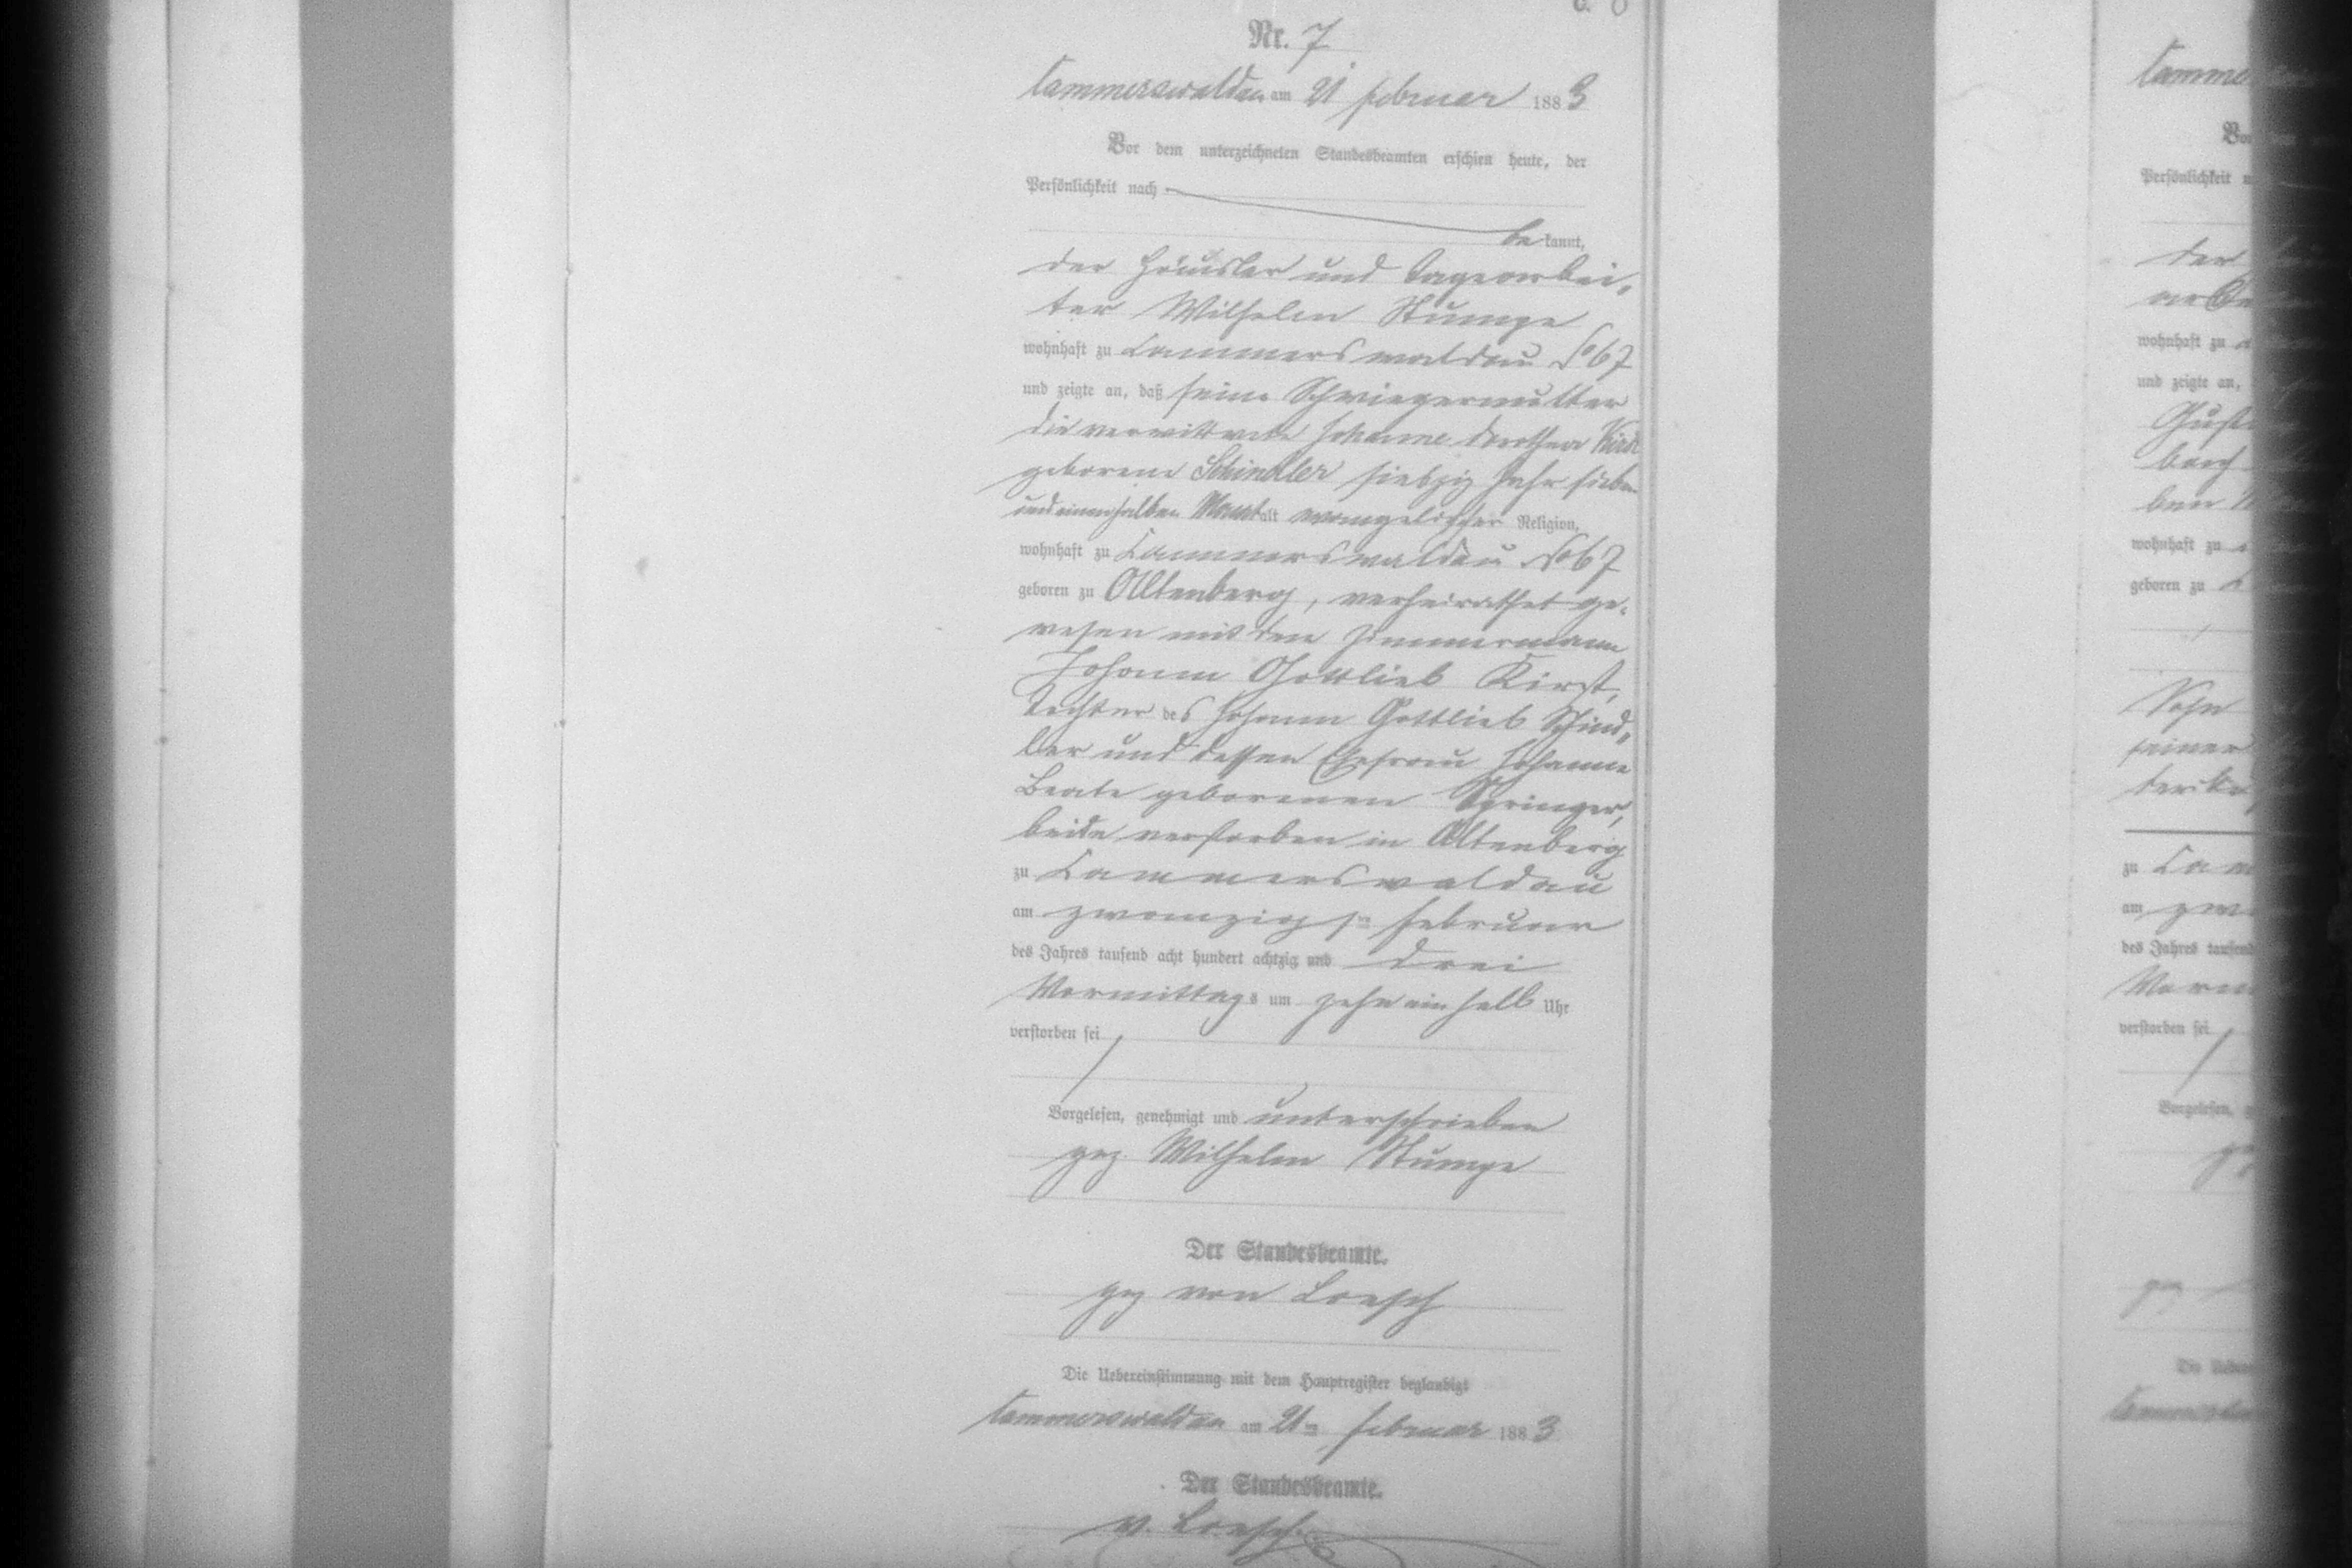 Nr. 7
Cammerswaldau am 21 Februar 1883
Vor dem unterzeichneten Standesbeamten erschien heute, der
Persönlichkeit nach
be kannt,
der Häusler und Tagearbei„
ter Wilhelm Stumpe
wohnhaft zu Cammerswaldau No 67
und zeigte an, daß seine Schwiegermutter
die verwittwete Johanne Dorothea Kirst
geborene Schindler siebzig Jahr sieben
und einen halben Monat alt evangelischer Religion,
wohnhaft zu Cammerswaldau No 67
geboren zu Altenberg, verheirathet ge„
wesen mit dem Zimmermann
Johann Gottlieb Kirst,
Tochter des Johann Gottlieb Schind„
ler und dessen Ehefrau Johanne
Beate geborenen Springer,
beide verstorben in Altenberg
zu Cammerswaldau
am zwanzigsten Februar
des Jahres tausend acht hundert achtzig und drei
Vormittags um zehn ein halb Uhr
verstorben sei
Vorgelesen, genehmigt und unterschrieben
gez. Wilhelm Stumpe
Der Standesbeamte.
gez von Loesch
Die Uebereinstimmung mit dem Hauptregister beglaubigt
Cammerswaldau am 21ten Februar 1883
Der Standesbeamte.
v. Loesch
Persönlichkeit
der
wohnhaft zu
und zeigte an,
wohnhaft zu
geboren zu
Sohn
zu
am
des Jahres tausend
verstorben sei
Vorgelesen,